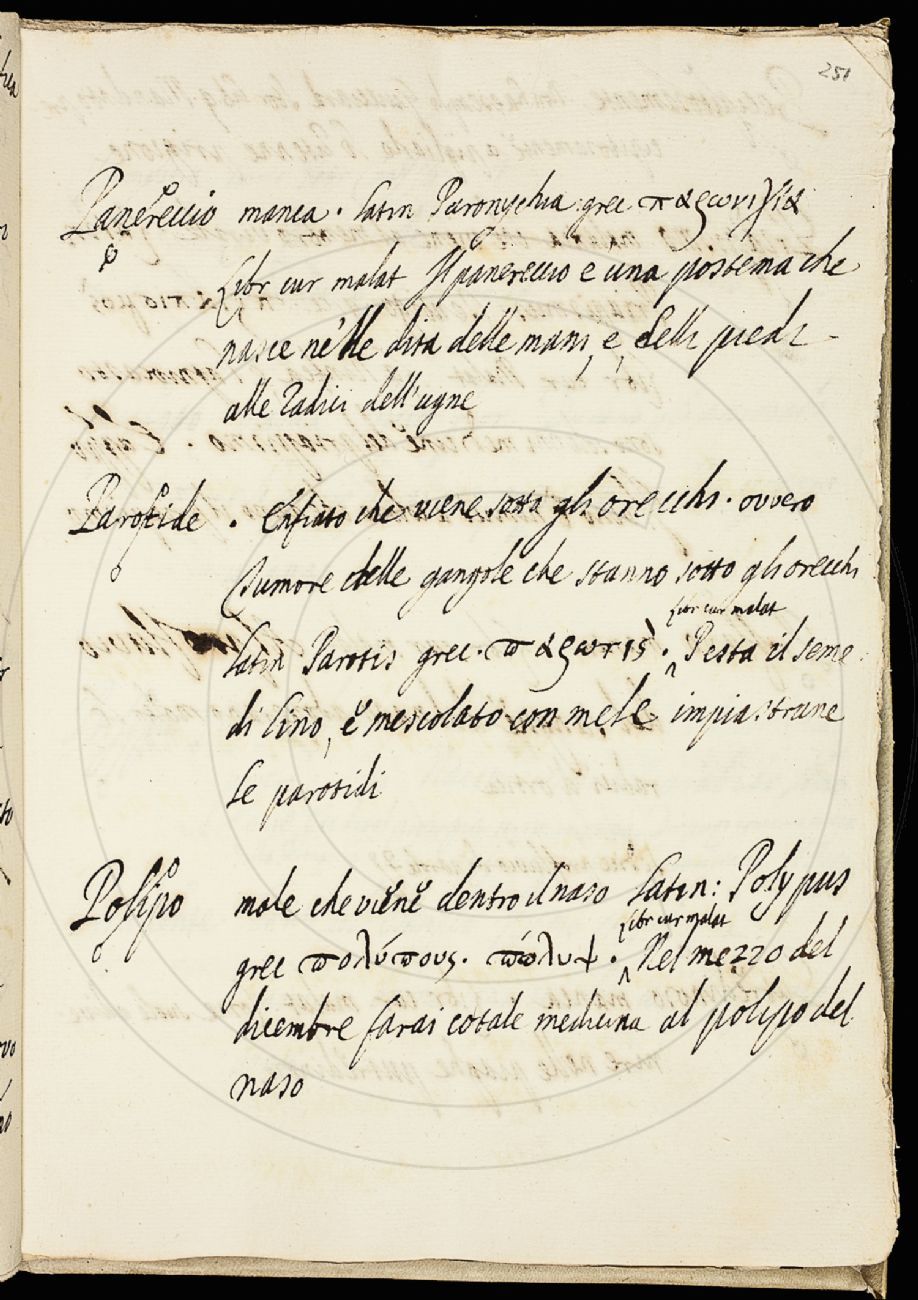 251
Panereccio manca. Latin Paronychia grec παρωνιχία
φ
Libr cur malat Il panereccio è una postema che
nasce nelle dita delle mani, e, delli piedi
alle radici dell'ugne
Parotide. Enfiato che viene sotto gli orecchi. ovvero
tumore delle gangole che stanno sotto gli orecchi
Libr cur malat
Latin Parotis grec. παρωτὶς. ^ Pesta il seme
di lino, e mescolato con mele impiastrane
le parotidi
Polipo male che viene dentro il naso Latin: Polypus
Libr cur malat
grec πολύπους. πώλυψ. ^ Nel mezzo del
dicembre farai cotale medicina al polipo del
naso